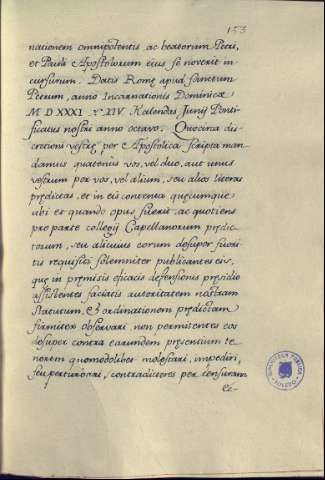 153
nationem omnipotentis ac beatorum Petri,
et Pauli Apostolorum eius se noverit in-
cursurum. Datis Romę apud sanctum
Petrum, anno Incarnationis Dominicæ
M D XXXI XIV Kalendas Junij Ponti-
ficatus nostri anno octavo. Quocirca dis-
cretioni vestrę per Apostolica scripta man-
damus quatenus vos, vel duo, aut unus
vestrum per vos, vel alium, seu alios literas
prędictas, et in eis contenta quęcumque
ubi et quando opus fuerit ac quotiens
pro parte collegij Capellanorum prędic-
torum, seu alicuius eorum desuper fueri-
tis requisiti solemniter publicantes eis,
quę in pręmissis eficacis defensionis pręsidio
assistentes faciatis autoritatem nostram
statutum, et ordinationem prędictam
firmiter observari non permitentes eos
desuper contra earundem pręsentium te-
norem quomodolibet molestari, impediri,
seu perturbari, contradictores per censuram
ec-
BIBLIOTECA PUBLICA
TOLEDO